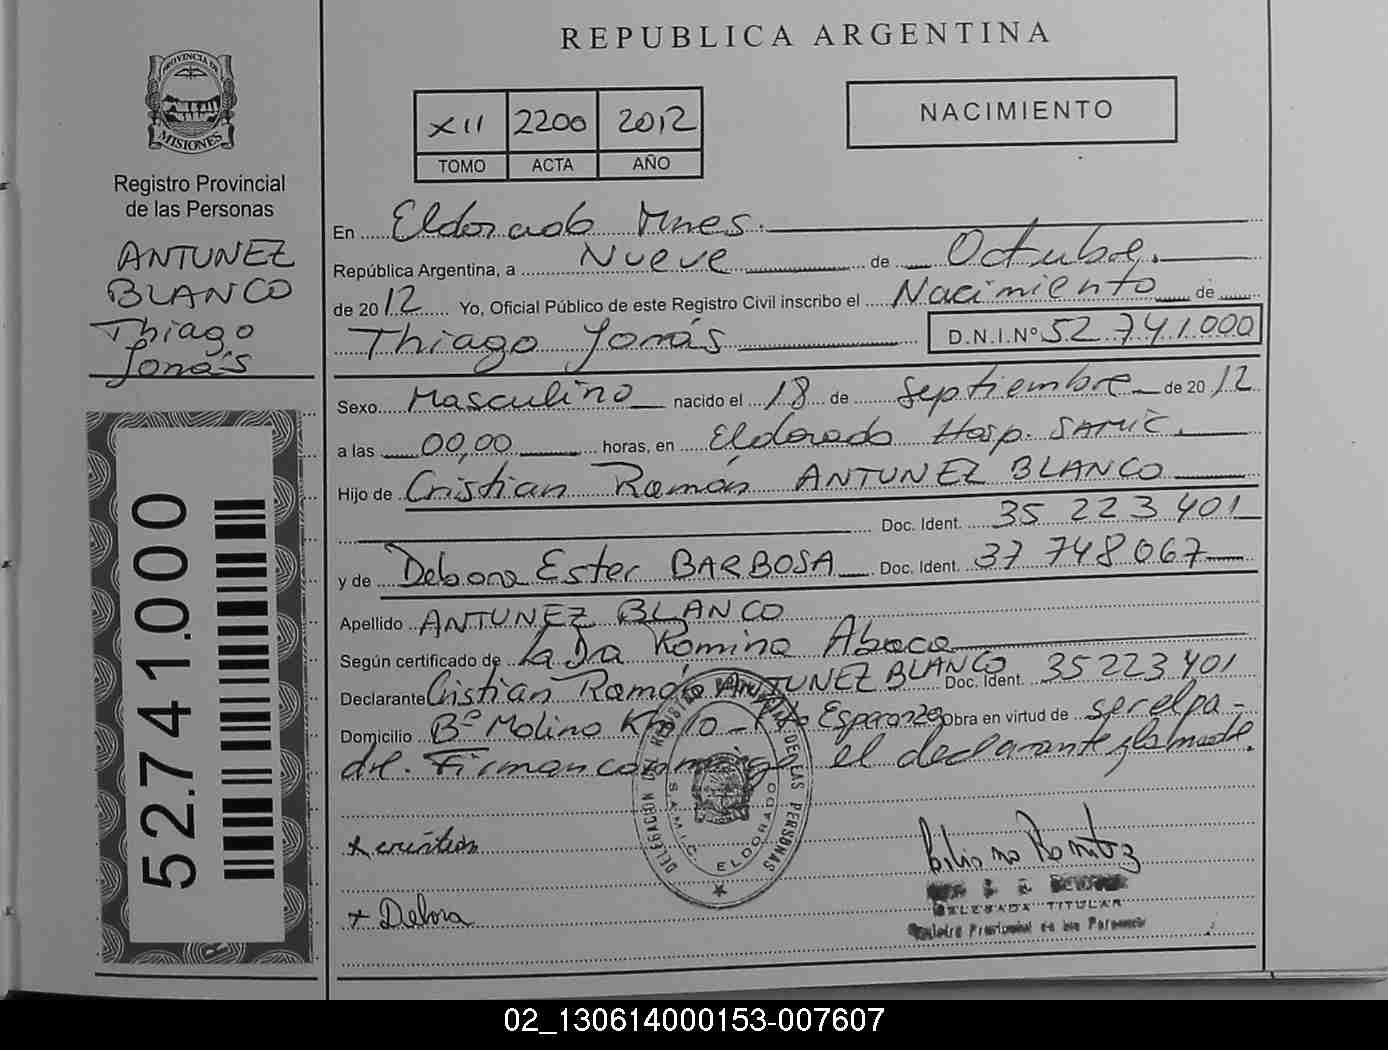 PROVINCIA DE
MISIONES
Registro Provincial
de las Personas
ANTUNEZ
BLANCO
Thiago
Jonás
52.741.000
REPUBLICA ARGENTINA
XII 2200 2012
TOMO ACTA AÑO
NACIMIENTO
En Eldorado Mnes.
República Argentina, a Nueve de Octubre.
de 2012 Yo, Oficial Público de este Registro Civil inscribo el Nacimiento de
Thiago Jonás D.N.I.Nº 52.741.000
Sexo Masculino nacido el 18 de Septiembre de 2012
a las 00,00 horas, en Eldorado Hosp. SAMIC.
Hijo de Cristian Ramón ANTUNEZ BLANCO
Doc. Ident. 35 223 401
y de Debora Ester BARBOSA Doc. Ident. 37 748 067
Apellido ANTUNEZ BLANCO
Según certificado de La Dra Romina Abaca
Declarante Cristian Ramón ANTUNEZ BLANCO Doc. Ident. 35 223 401
Domicilio Bº Molino Esperanza Obra en virtud de ser el pa-
dre. Firman el declarante y la madre.
DELEGACIÓN DEL REGISTRO DE LAS PERSONAS
S.A.M.I.C. ELDORADO
x cristian
x Debora
DELEGADA TITULAR
Registro Provincial de las Personas
02_130614000153-007607